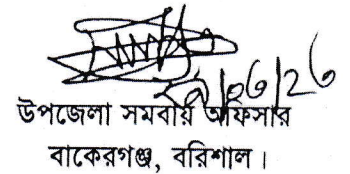 উপজেলা সমবায় অফিসার
বাকেরগঞ্জ, বরিশাল।